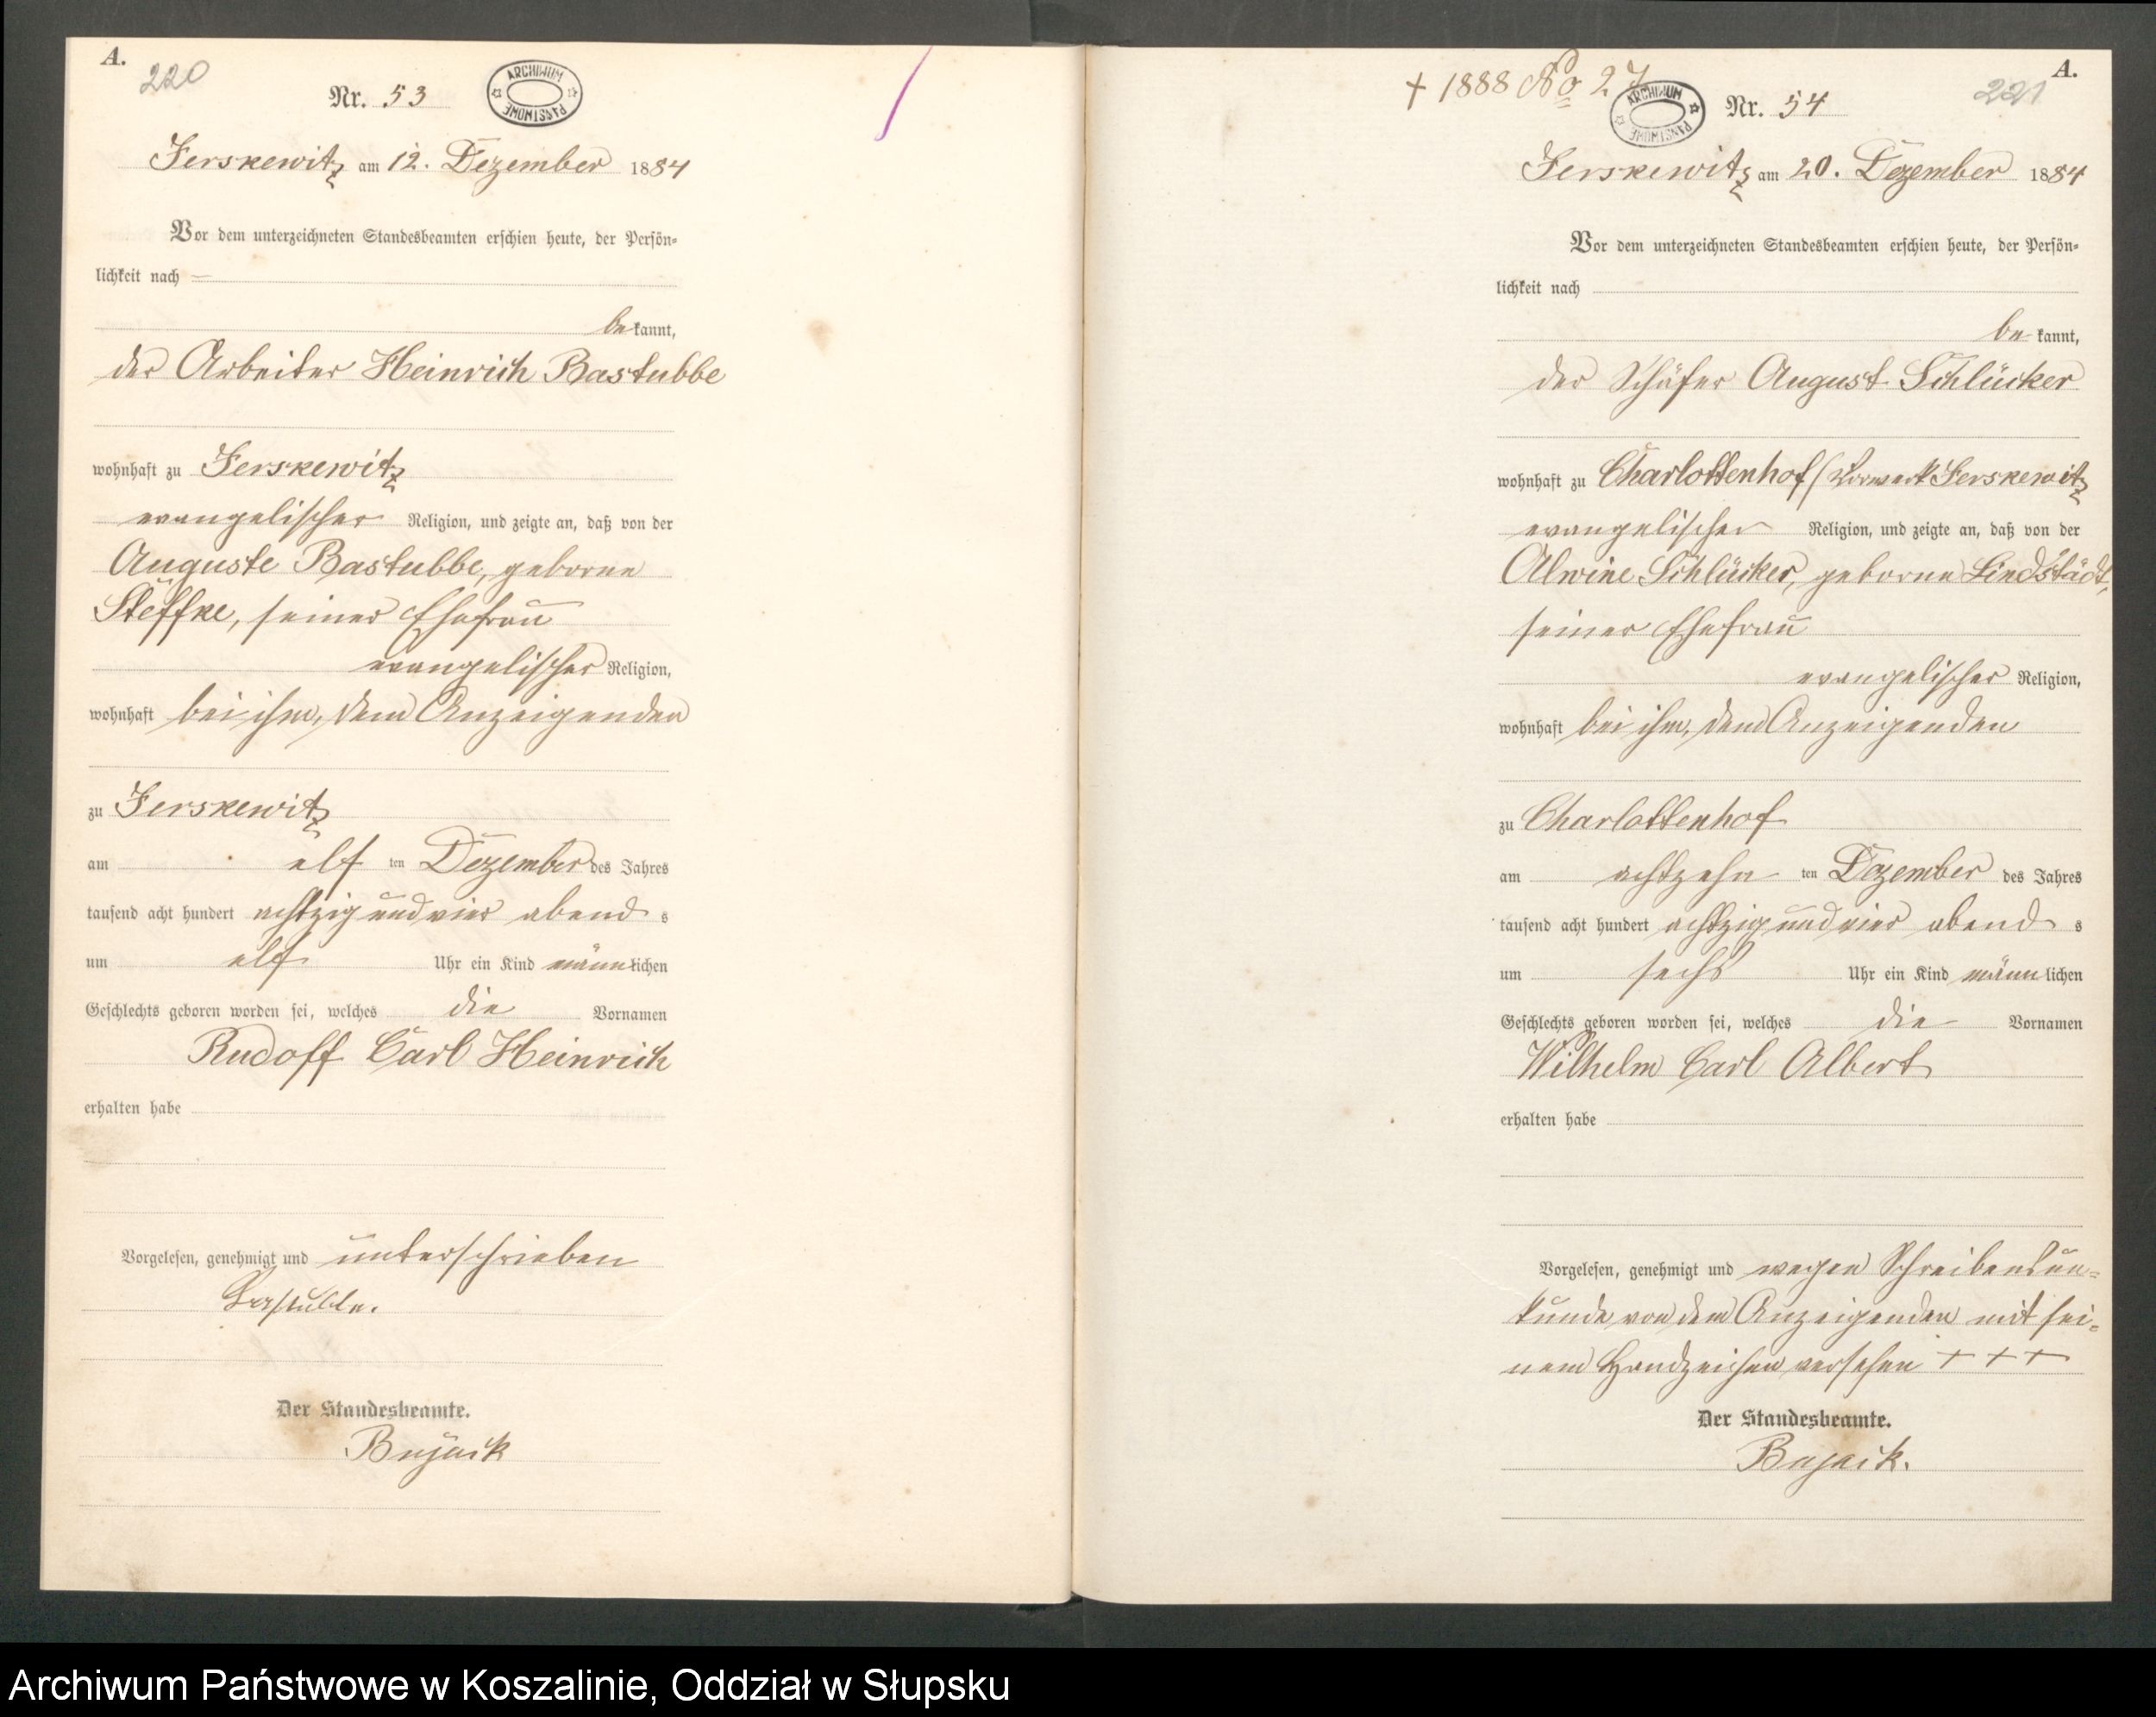 A.
220
Nr. 53
ARCHIWUM PAŃSTWOWE
Jerskewitz am 12. Dezember 1884
Vor dem unterzeichneten Standesbeamten erschien heute, der Persön-
lichkeit nach
be kannt,
der Arbeiter Heinrich Bastubbe
wohnhaft zu Jerskewitz
evangelischer Religion, und zeigte an, daß von der
Auguste Bastubbe, geborne
Steffke, seiner Ehefrau
evangelischer Religion,
wohnhaft bei ihm, dem Anzeigenden
zu Jerskewitz
am elf ten Dezember des Jahres
tausend acht hundert achtzig und vier abend s
um elf Uhr ein Kind männlichen
Geschlechts geboren worden sei, welches die Vornamen
Rudolf Carl Heinrich
erhalten habe
Vorgelesen, genehmigt und unterschrieben
Bastubbe.
Der Standesbeamte.
Bujack
† 1888 No 27
ARCHIWUM PAŃSTWOWE
Nr. 54
221
A.
Jerskewitz am 20. Dezember 1884
Vor dem unterzeichneten Standesbeamten erschien heute, der Persön-
lichkeit nach
be kannt,
der Schäfer August Schlücker
wohnhaft zu Charlottenhof (Vorwerk Jerskewitz
evangelischer Religion, und zeigte an, daß von der
Alwine Schlücker, geborne Lindstädt,
seiner Ehefrau
evangelischer Religion,
wohnhaft bei ihm, dem Anzeigenden
zu Charlottenhof
am achtzehn ten Dezember des Jahres
tausend acht hundert achtzig und vier abend s
um sechs Uhr ein Kind männlichen
Geschlechts geboren worden sei, welches die Vornamen
Wilhelm Carl Albert
erhalten habe
Vorgelesen, genehmigt und wegen Schreibensun-
kunde von dem Anzeigenden mit sei-
nem Handzeichen versehen + + +
Der Standesbeamte.
Bujack.
Archiwum Państwowe w Koszalinie, Oddział w Słupsku